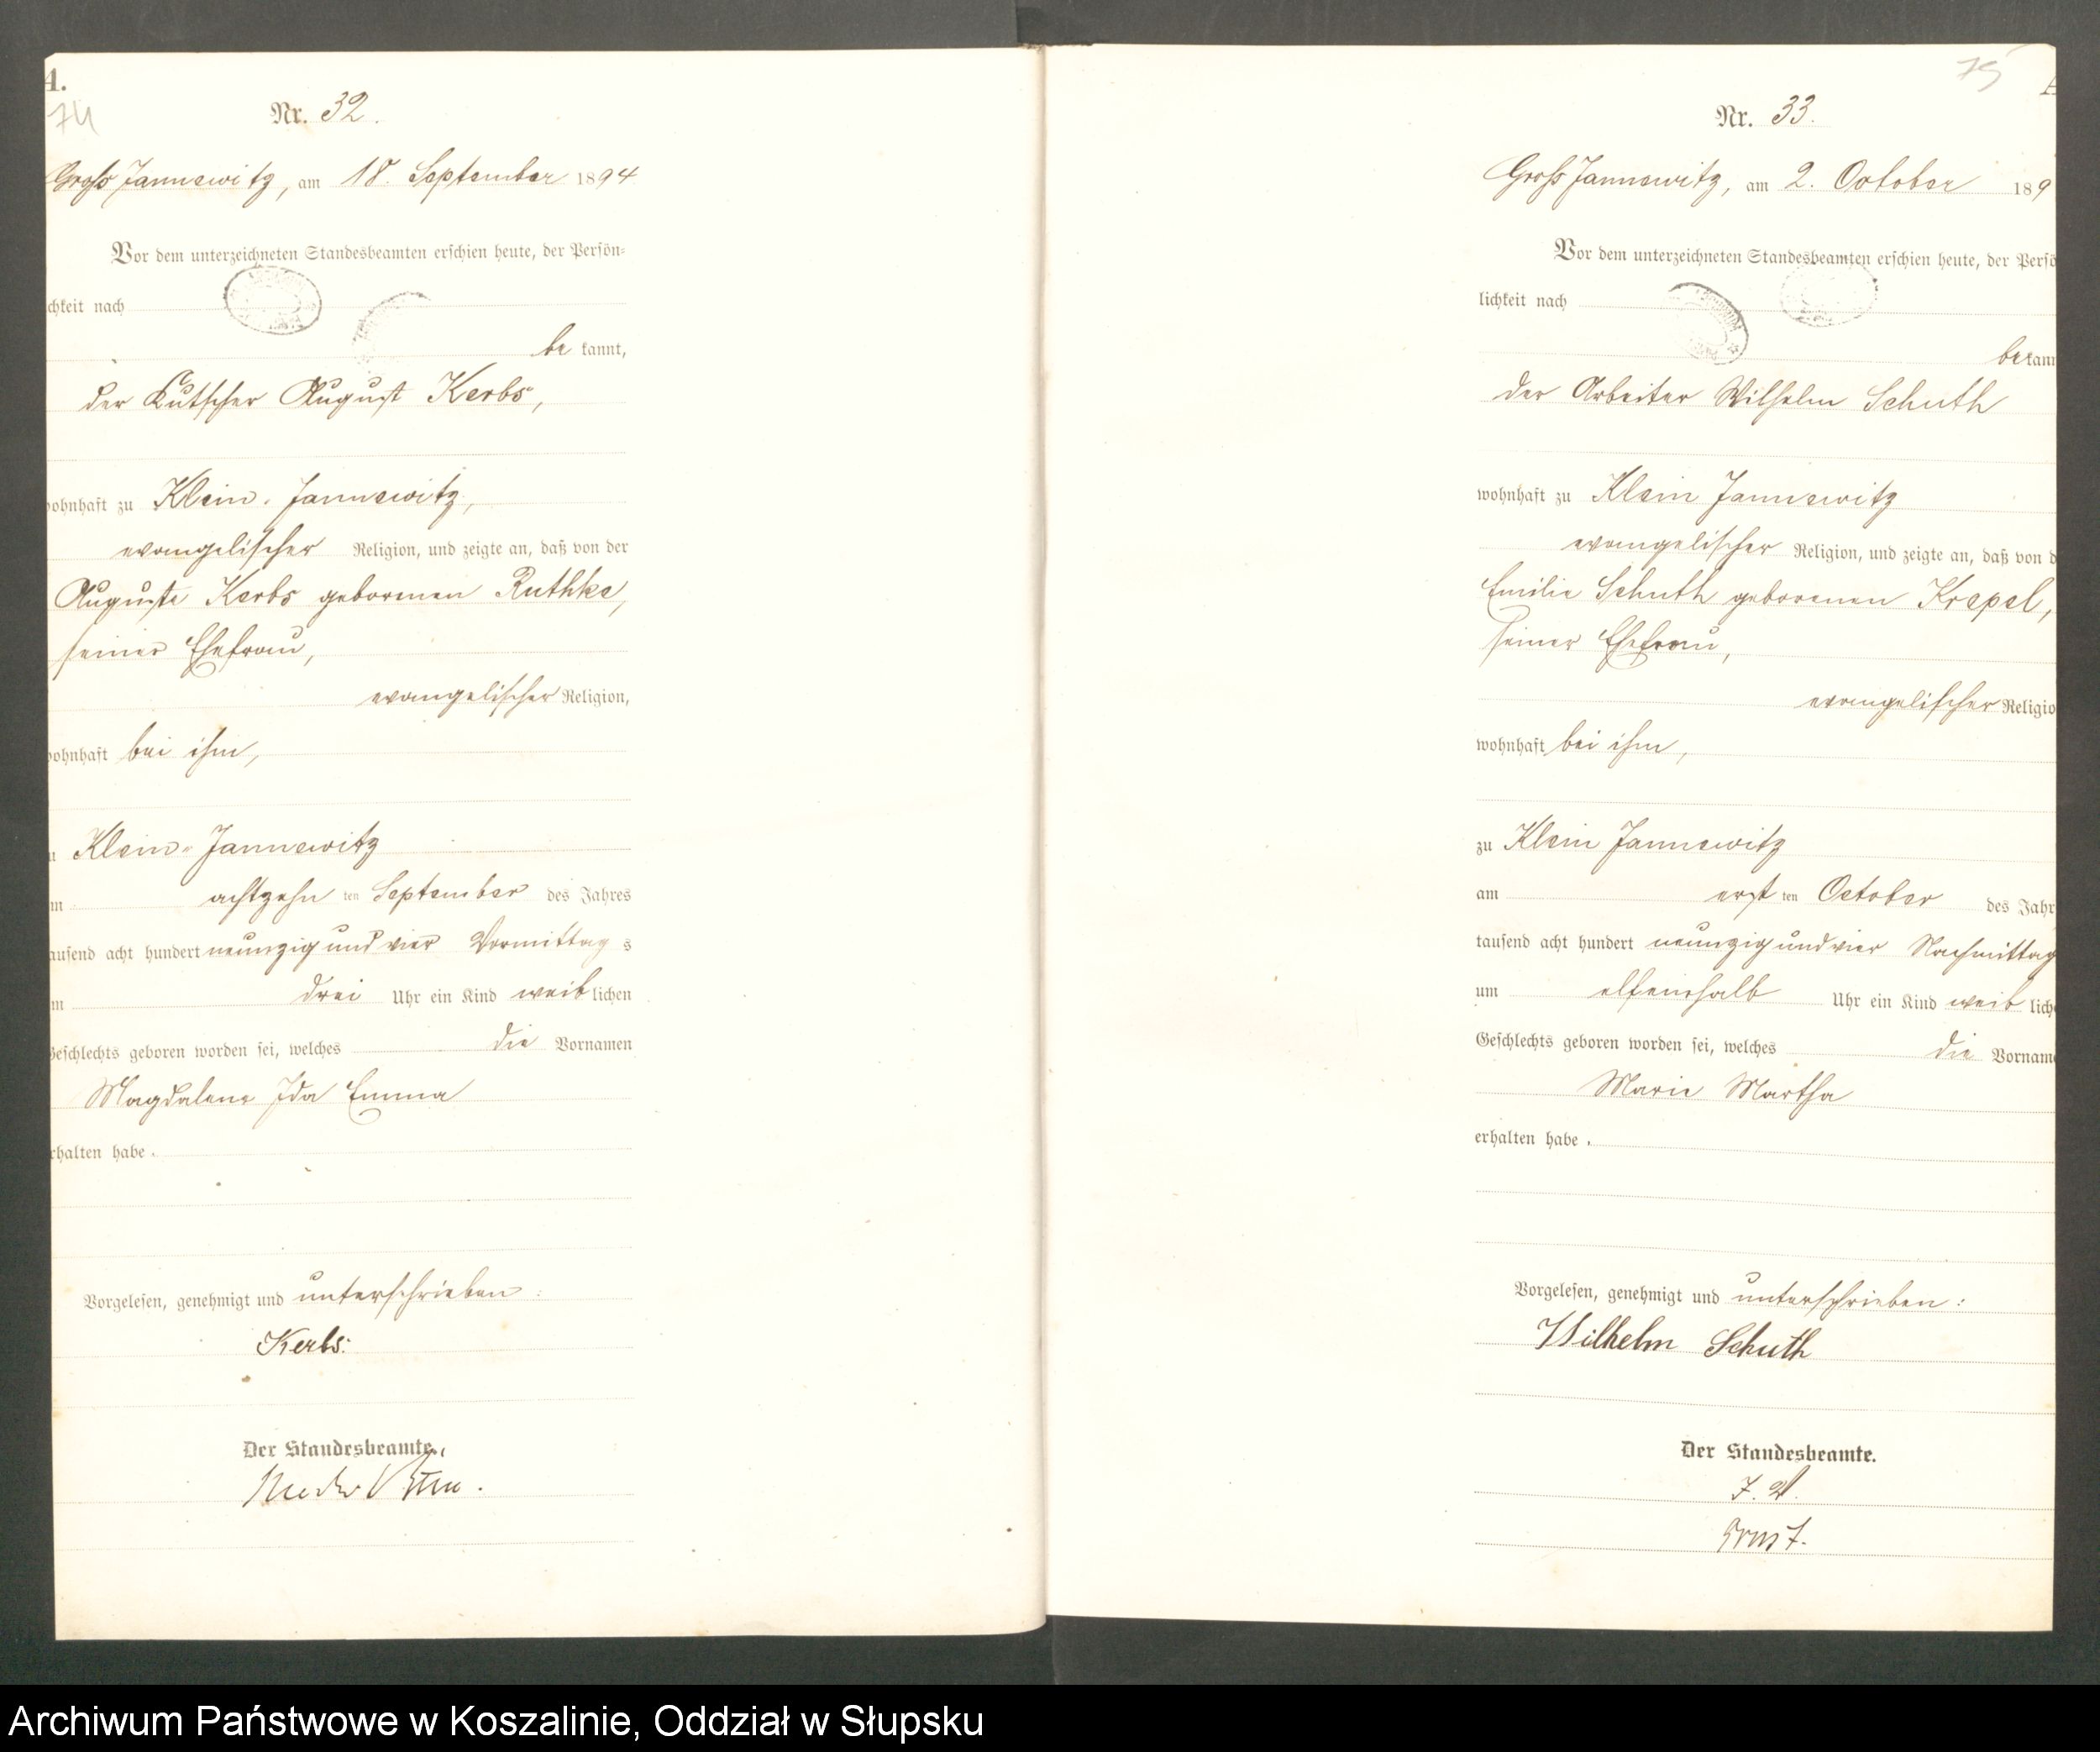 A.
74
Nr. 32.
Groß Jannewitz, am 18. September 1894
Vor dem unterzeichneten Standesbeamten erschien heute, der Persön-
chkeit nach
be kannt,
der Kutscher August Kerbs,
wohnhaft zu Klein-Jannewitz,
evangelischer Religion, und zeigte an, daß von der
Auguste Kerbs geborenen Ruthke,
seiner Ehefrau,
evangelischer Religion,
wohnhaft bei ihm,
u Klein-Jannewitz
m achtzehn ten September des Jahres
ausend acht hundert neunzig und vier Vormittag s
m drei Uhr ein Kind weiblichen
Geschlechts geboren worden sei, welches die Vornamen
Magdalene Ida Emma
rhalten habe.
Vorgelesen, genehmigt und unterschrieben:
Kerbs.
Der Standesbeamte.
75
Nr. 33.
Groß Jannewitz, am 2. October 189
Vor dem unterzeichneten Standesbeamten erschien heute, der Persö
lichkeit nach
bekann
der Arbeiter Wilhelm Schuth
wohnhaft zu Klein Jannewitz
evangelischer Religion, und zeigte an, daß von d
Emilie Schuth geborenen Krepel,
seiner Ehefrau,
evangelischer Religio
wohnhaft bei ihm,
zu Klein Jannewitz
am erst ten October des Jahr
tausend acht hundert neunzig und vier Nachmittag
um elfeinhalb Uhr ein Kind weib lich
Geschlechts geboren worden sei, welches die Vorname
Marie Martha
erhalten habe.
Vorgelesen, genehmigt und unterschrieben:
Wilhelm Schuth
Der Standesbeamte.
I. V.
Ernst.
Archiwum Państwowe w Koszalinie, Oddział w Słupsku